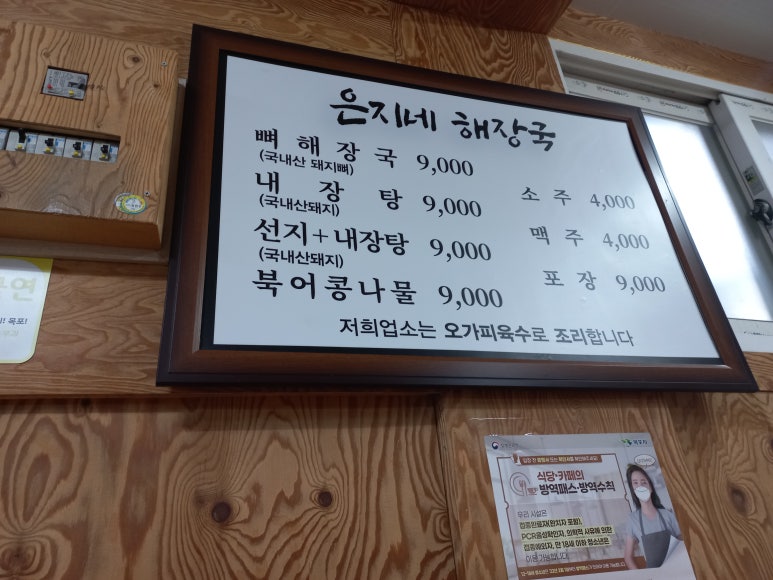 은지네 해장국
뼈 해 장 국 9,000
(국내산 돼지뼈)
내 장 탕 9,000
(국내산돼지)
선지+내장탕 9,000
(국내산돼지)
북어콩나물 9,000
소 주 4,000
맥 주 4,000
포 장 9,000
저희업소는 오가피육수로 조리합니다
목포!
식당·카페의
방역패스·방역수칙
우리 시설은
접종완료자(완치자 포함),
PCR음성확인자, 의학적 사유에 의한
접종예외자, 만 18세 이하 청소년은
이용 가능합니다